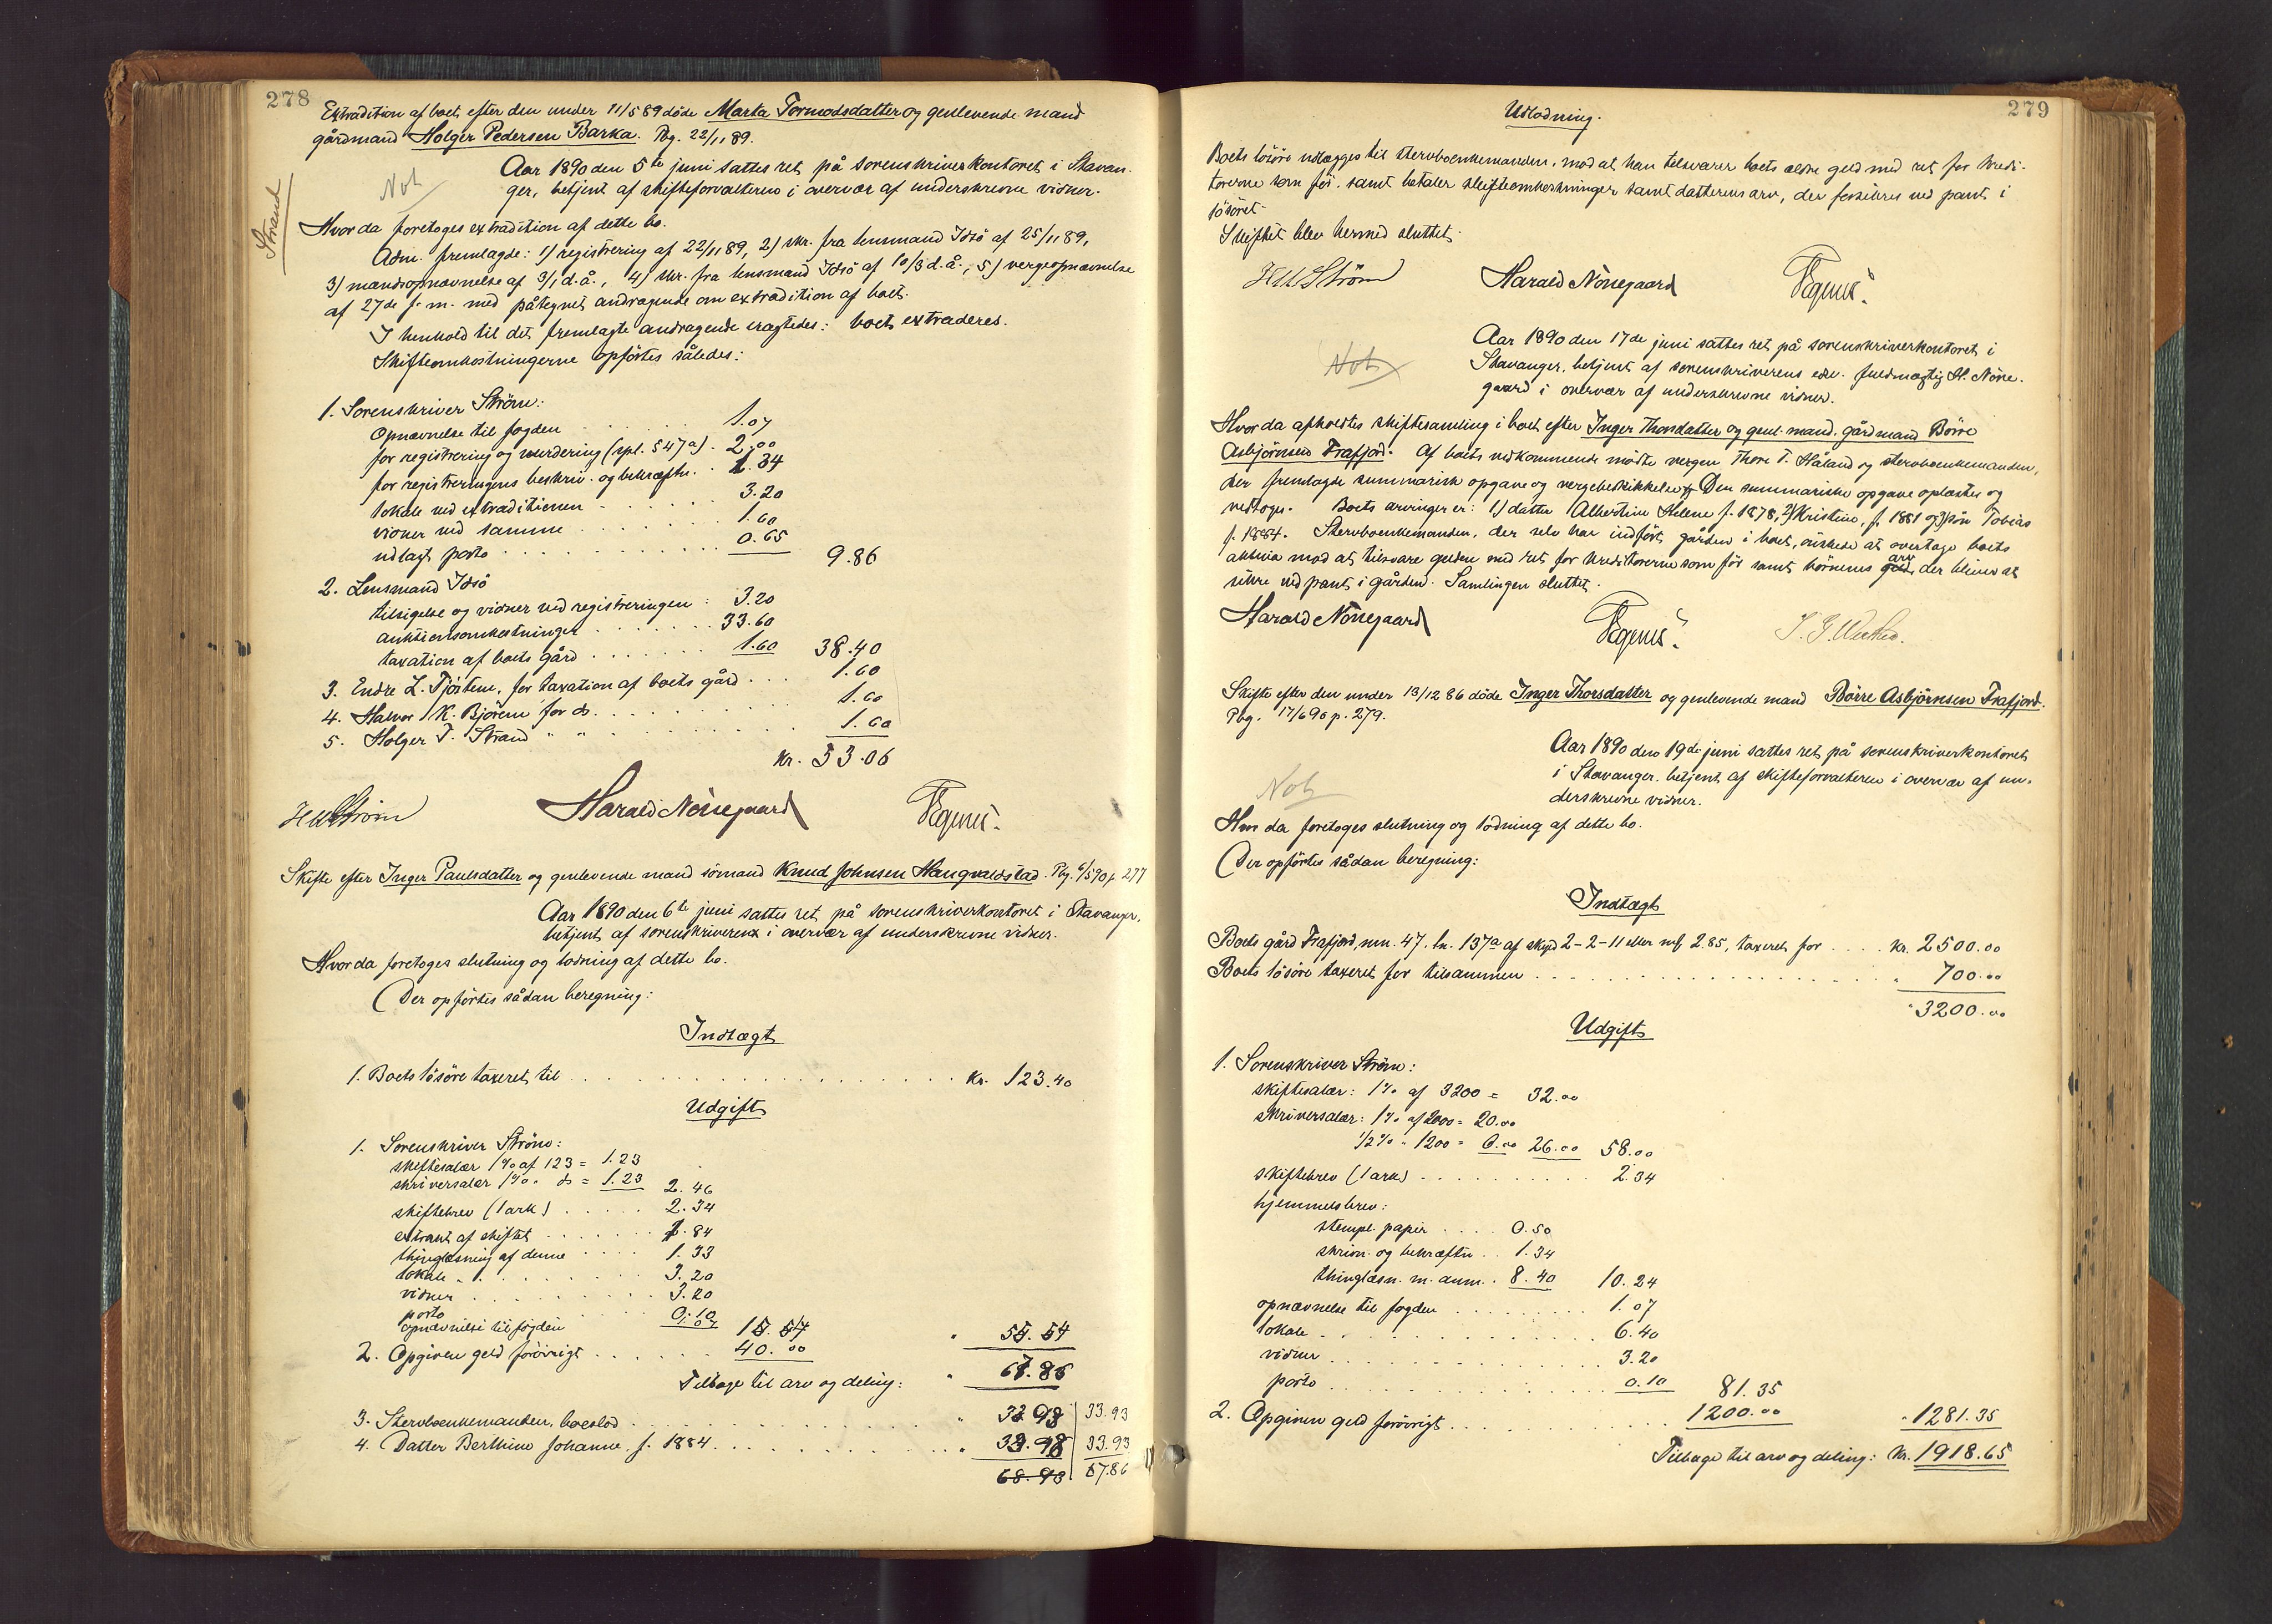 278
Extradition af boet efter den under 11/5 89 døde Marta Tormodsdatter og genlevende mand
gårdmand Holger Pedersen Barka. Pbg. 22/11 89.
Strand
Not
Aar 1890 den 5te juni sattes ret på sorenskriverkontoret i Stavan-
ger, betjent af skifteforvalteren i overvær af underskrevne vidner.
Hvor da foretoges extradition af dette bo.
Adm. fremlagde: 1) registrering af 22/11 89, 2) skr. fra lensmand Idsö af 25/11 89,
3) mandsopnævnelse af 3/1 d.å., 4) skr. fra lensmand Idsö af 10/3 d.å., 5) vergeopnævnelse
af 27de f.m. med påtegnet andragende om extradition af boet.
I henhold til det fremlagte andragende eragtedes: boet extraderes.
Skifteomkostningerne opførtes således:
1. Sorenskriver Ström:
opnævnelse til fogden 1.07
for registrering og vurdering (spl. § 47a) 2.00
for registreringens beskriv. og bekræftn. 1.34
lokale ved extraditionen 3.20
vidner ved samme 1.60
udlagt porto 0.65 9.86
2. Lensmand Idsö
tilsigelse og vidner ved registreringen 3.20
auktionsomkostninger 33.60
taxation af boets gård 1.60 38.40
3. Endre L. Tjöstem, for taxation af boets gård 1.60
4. Halvor K. Björeim for do. 1.60
5. Holger T. Strand " " 1.60
Kr. 53.06
HW Ström Harald Nörregaard
Skifte efter Inger Paulsdatter og genlevende mand sömand Knud Johnsen Haugvaldstad. Pbg. 6/5 90 p. 277
Aar 1890 den 6te juni sattes ret på sorenskriverkontoret i Stavanger,
betjent af sorenskriveren i overvær af underskrevne vidner.
Hvor da foretoges slutning og lodning af dette bo.
Der opførtes sådan beregning:
Indtægt
1. Boets lösöre taxeret til kr. 123.40
Udgift
1. Sorenskriver Ström:
skiftesalær 1% af 123 = 1.23
skriversalær 1% " do = 1.23 2.46
skiftebrev (1 ark) 2.34
extrakt af skiftet 1.84
thinglæsning af denne 1.33
lokale 3.20
vidner 3.20
porto 0.10
opnævnelse til fogden 15.54
2. Opgiven geld forövrigt 40.00 " 55.54
Tilbage til arv og deling: " 67.86
3. Stervboenkemanden, boeslod " 33.93 33.93
4. Datter Berthine Johanne f. 1884 " 33.93 33.93
68.93 67.86
279
Udlodning.
Boets lösöre udlægges til stervboenkemanden, mod at han tilsvarer boets ældre geld med ret for kredi-
torerne som för, samt betaler skifteomkostninger samt datterens arv, der forsikres ved pant i
lösöret.
Skiftet blev hermed sluttet.
HW Ström Harald Nörregaard
Not
Aar 1890 den 17de juni sattes ret på sorenskriverkontoret i
Stavanger, betjent af sorenskriverens edsv. fuldmægtig H. Nörre-
gaard i overvær af underskrevne vidner.
Hvor da afholdtes skiftesamling i boet efter Inger Thorsdatter og genl. mand, gårdmand Börre
Asbjörnsen Frafjord. Af boets vedkommende mödte vergen Thore T. Håland og stervboenkemanden,
der fremlagde summarisk opgave og vergebeskikkelse. Den summariske opgave oplæstes og
vedtoges. Boets arvinger er: 1) datter Albertine Helene f. 1878, 2) Kristine, f. 1881 og 3) sön Tobias
f. 1884. Stervboenkemanden, der selv har indfört gården i boet, önskede at overtage boets
aktiva mod at tilsvare gelden med ret for kreditorerne som för samt börnenes arv der bliver at
sikre ved pant i gården. Samlingen sluttet.
Harald Nörregaard
Skifte efter den under 13/12 86 døde Inger Thorsdatter og genlevende mand Börre Asbjörnsen Frafjord.
Pbg. 17/6 90 p. 279.
Not
Aar 1890 den 19de juni sattes ret på sorenskriverkontoret
i Stavanger, betjent af skifteforvalteren i overvær af un-
derskrevne vidner.
Hvor da foretoges slutning og lodning af dette bo.
Der opførtes sådan beregning:
Indtægt
Boets gård Frafjord, mn. 47, ln. 137a af skyld 2-2-11 eller mk 2.85, taxeret for kr. 2500.00
Boets lösöre taxeret for tilsammen " 700.00
" 3200.00
Udgift
1. Sorenskriver Ström:
skiftesalær: 1% af 3200 = 32.00
skriversalær: 1% af 2000 = 20.00
1/2% " 1200 = 6.00 26.00 58.00
skiftebrev (1 ark) 2.34
hjemmelsbrev:
stempl. papir 0.50
skrivn. og bekræftn. 1.34
thinglæsn. m. anm. 8.40 10.24
opnævnelse til fogden 1.07
lokale 6.40
vidner 3.20
porto 0.10 81.35
2. Opgiven geld forövrigt 1200.00 " 1281.35
Tilbage til arv og deling: kr. 1918.65